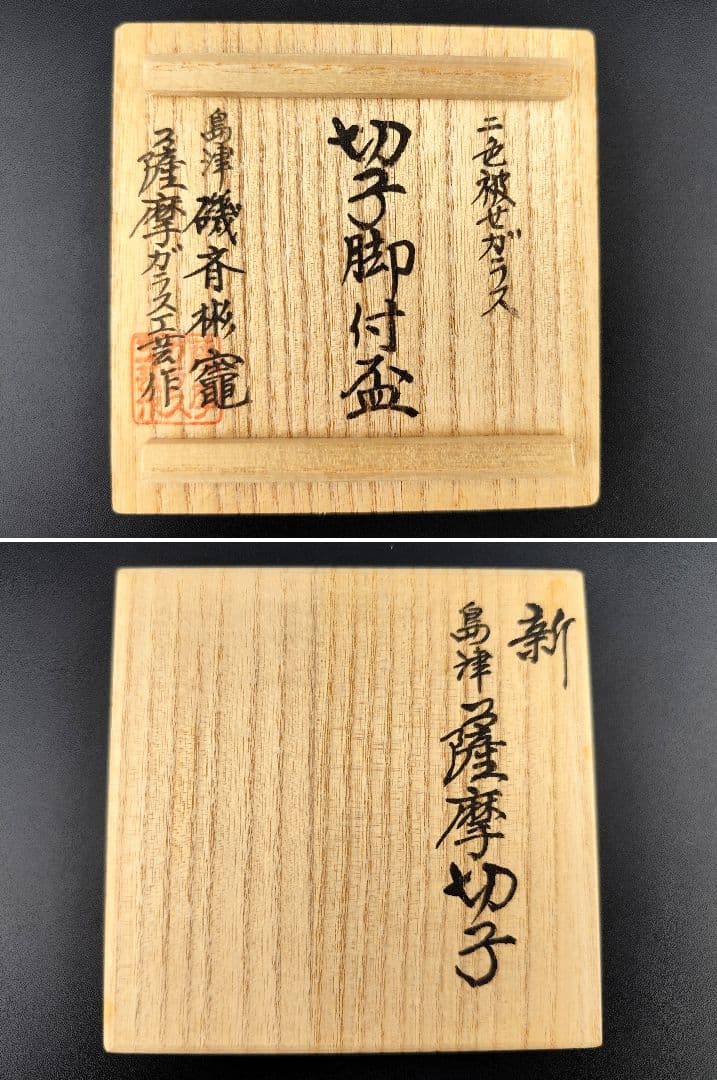 二色被せガラス
切子脚付盃
島津
磯斉彬竈
薩摩ガラス工芸作
新
島津
薩摩切子